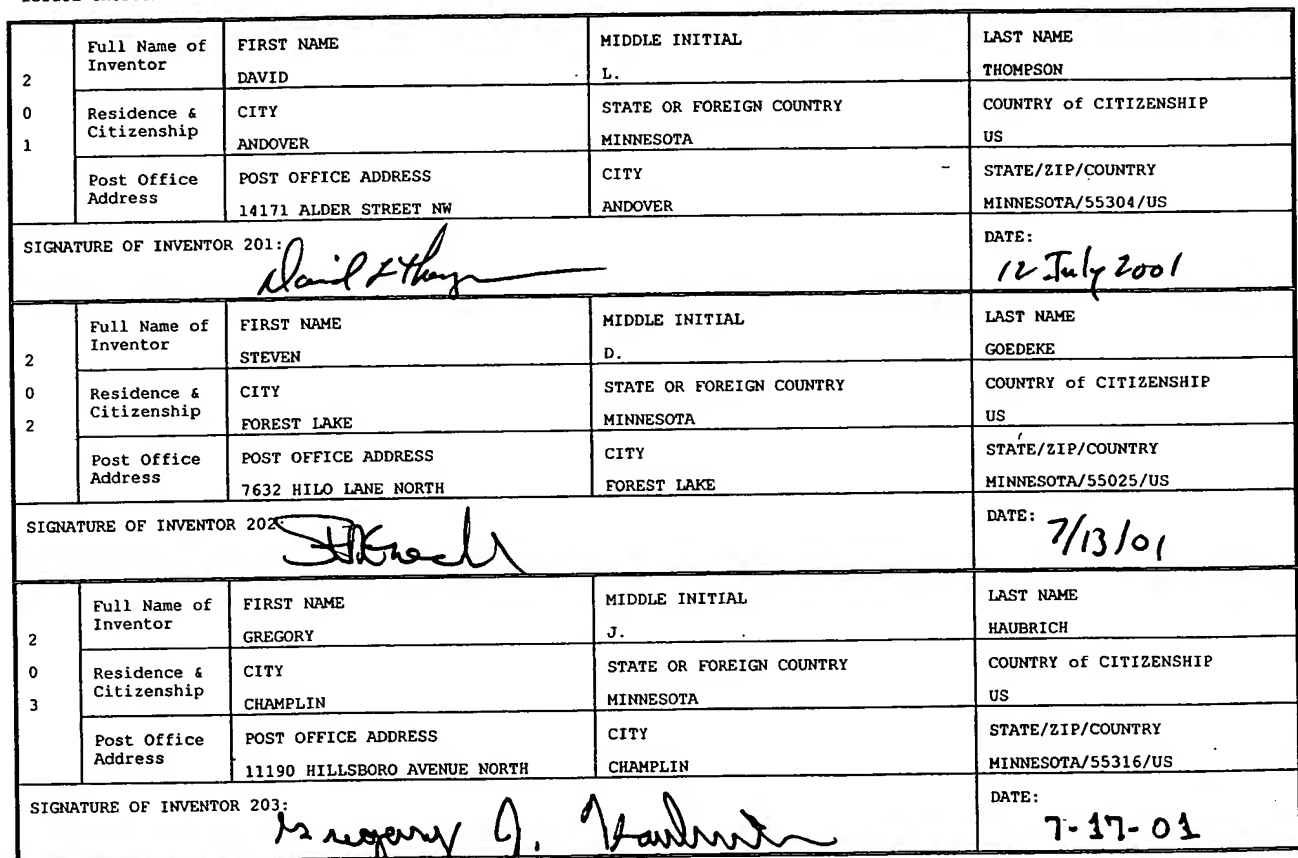 2 0 1
Full Name of Inventor
FIRST NAME
DAVID
MIDDLE INITIAL
L.
LAST NAME
THOMPSON
Residence & Citizenship
CITY
ANDOVER
STATE OR FOREIGN COUNTRY
MINNESOTA
COUNTRY of CITIZENSHIP
US
Post Office Address
POST OFFICE ADDRESS
14171 ALDER STREET NW
CITY
ANDOVER
STATE/ZIP/COUNTRY
MINNESOTA/55304/US
SIGNATURE OF INVENTOR 201:
DATE:
12 July 2001
2 0 2
Full Name of Inventor
FIRST NAME
STEVEN
MIDDLE INITIAL
D.
LAST NAME
GOEDEKE
Residence & Citizenship
CITY
FOREST LAKE
STATE OR FOREIGN COUNTRY
MINNESOTA
COUNTRY of CITIZENSHIP
US
Post Office Address
POST OFFICE ADDRESS
7632 HILO LANE NORTH
CITY
FOREST LAKE
STATE/ZIP/COUNTRY
MINNESOTA/55025/US
SIGNATURE OF INVENTOR 202:
DATE:
7/13/01
2 0 3
Full Name of Inventor
FIRST NAME
GREGORY
MIDDLE INITIAL
J.
LAST NAME
HAUBRICH
Residence & Citizenship
CITY
CHAMPLIN
STATE OR FOREIGN COUNTRY
MINNESOTA
COUNTRY of CITIZENSHIP
US
Post Office Address
POST OFFICE ADDRESS
11190 HILLSBORO AVENUE NORTH
CITY
CHAMPLIN
STATE/ZIP/COUNTRY
MINNESOTA/55316/US
SIGNATURE OF INVENTOR 203:
Gregory J. Haubrich
DATE:
7-17-01